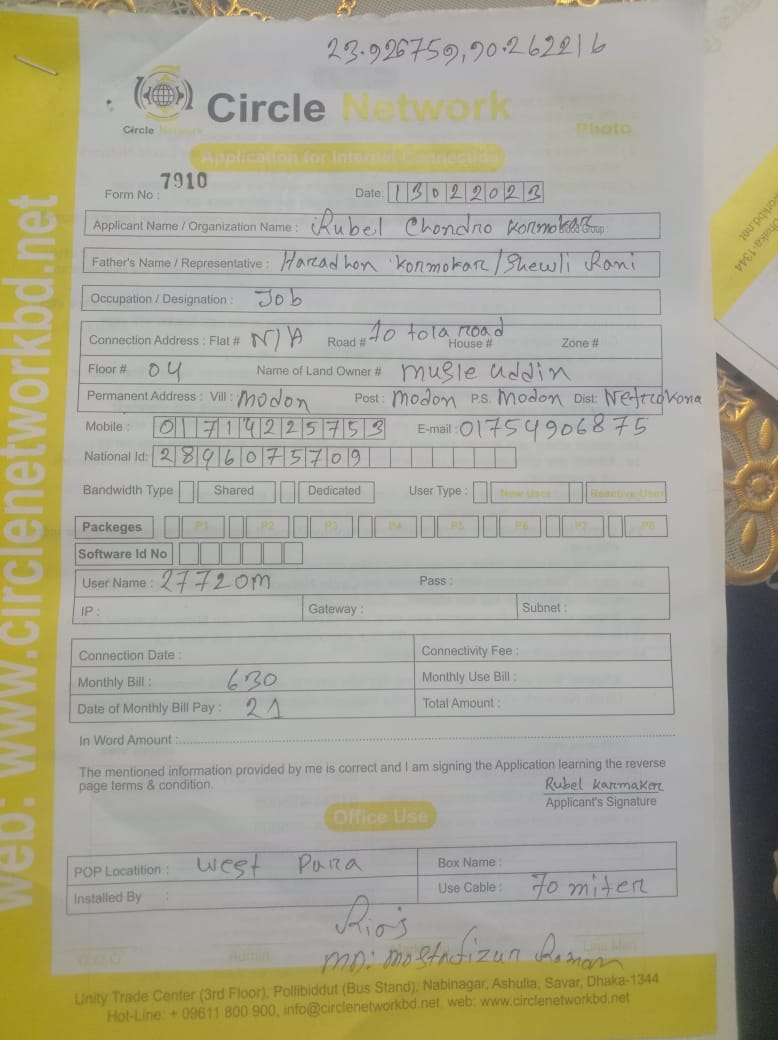 23.926759,90.262216
Circle Network
Circle Network
Photo
Application for Internet Connection
Form No : 7910
Date: 13022023
Applicant Name / Organization Name : Rubel Chondro Kormokar Blood Group :
Father's Name / Representative : Haradhon Kormokar/Shewli Rani
Occupation / Designation : Job
Connection Address : Flat # N/A Road # 10 tola road House # Zone #
Floor # 04 Name of Land Owner # musle uddin
Permanent Address : Vill : modon Post : modon P.S. Modon Dist: Netrokona
Mobile : 01714225753 E-mail : 01754906875
National Id: 2846075709
Bandwidth Type Shared Dedicated User Type : New User Reactive User
Packeges P1 P2 P3 P4 P5 P6 P7 P8
Software Id No
User Name : 27720m Pass :
IP : Gateway : Subnet :
Connection Date : Connectivity Fee :
Monthly Bill : 630 Monthly Use Bill :
Date of Monthly Bill Pay : 21 Total Amount :
In Word Amount :
The mentioned information provided by me is correct and I am signing the Application learning the reverse
page terms & condition.
Rubel karmaker
Applicant's Signature
Office Use
POP Locatition : West Para Box Name :
Installed By : Use Cable : 70 miter
MD: Mostafizur Roman
C.C.O Admin Line Man
Unity Trade Center (3rd Floor), Pollibiddut (Bus Stand), Nabinagar, Ashulia, Savar, Dhaka-1344
Hot-Line: + 09611 800 900, info@circlenetworkbd.net, web: www.circlenetworkbd.net
web: www.circlenetworkbd.net